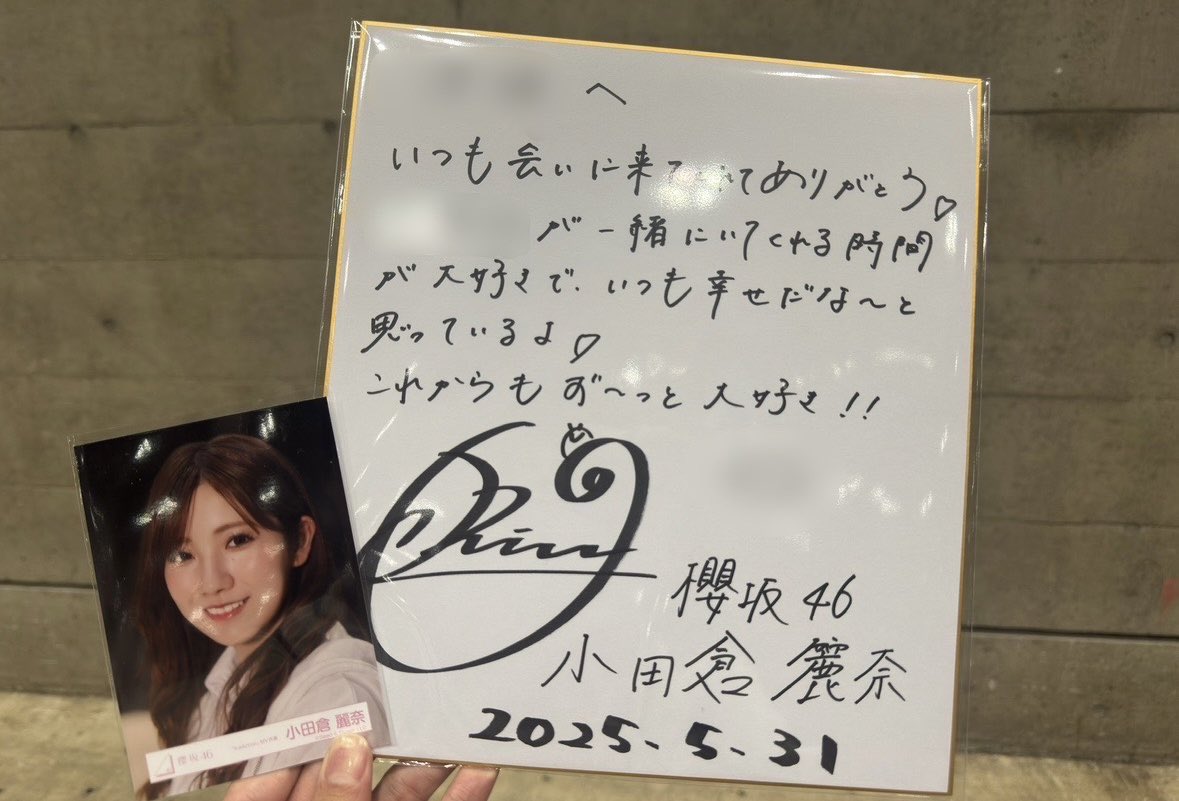 へ
いつも会いに来てくれてありがとう♡
が一緒にいてくれる時間
が大好きで、いつも幸せだな〜と
思っているよ♡
これからもず〜っと大好き!!
櫻坂46
小田倉 麗奈
2025.5.31
櫻坂46
小田倉 麗奈